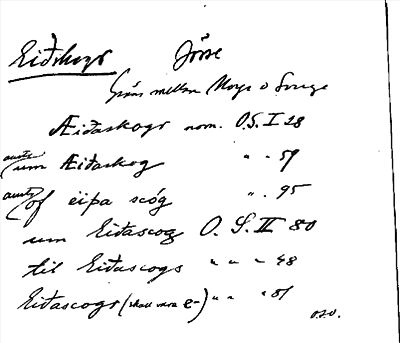 Eiðskogr Jösse
Gräns mellan Norge o Sverge
Æiðaskogr nom. O.S. I 28
austr um Æiðaskog " " 59
austr of eiþa scóg " " 95
um Eiðascog O. S. II 80
til Eiðascogs " " " 48
Eiðascogr (skall vara e-) " " " 81
o.s.v.